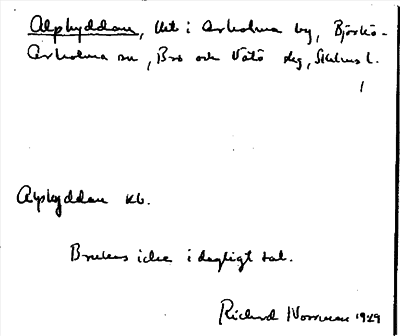 Alphyddan, kt i Arholma by, Björkö-
Arholma sn, Bro och Vätö slg, Sthlms l.
Alphyddan kt.
Brukas icke i dagligt tal.
Richard Norrman 1929